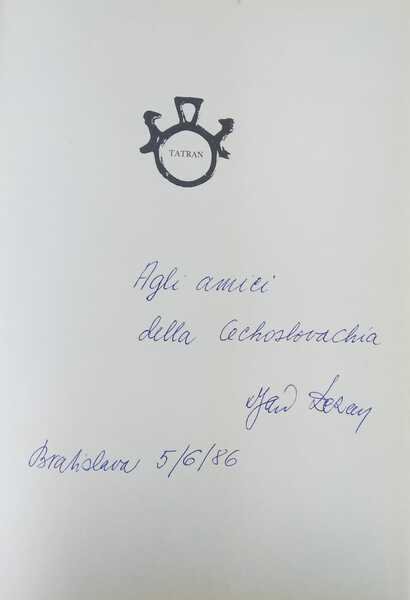 TATRAN
Agli amici
della Cechoslovachia
Bratislava 5/6/86